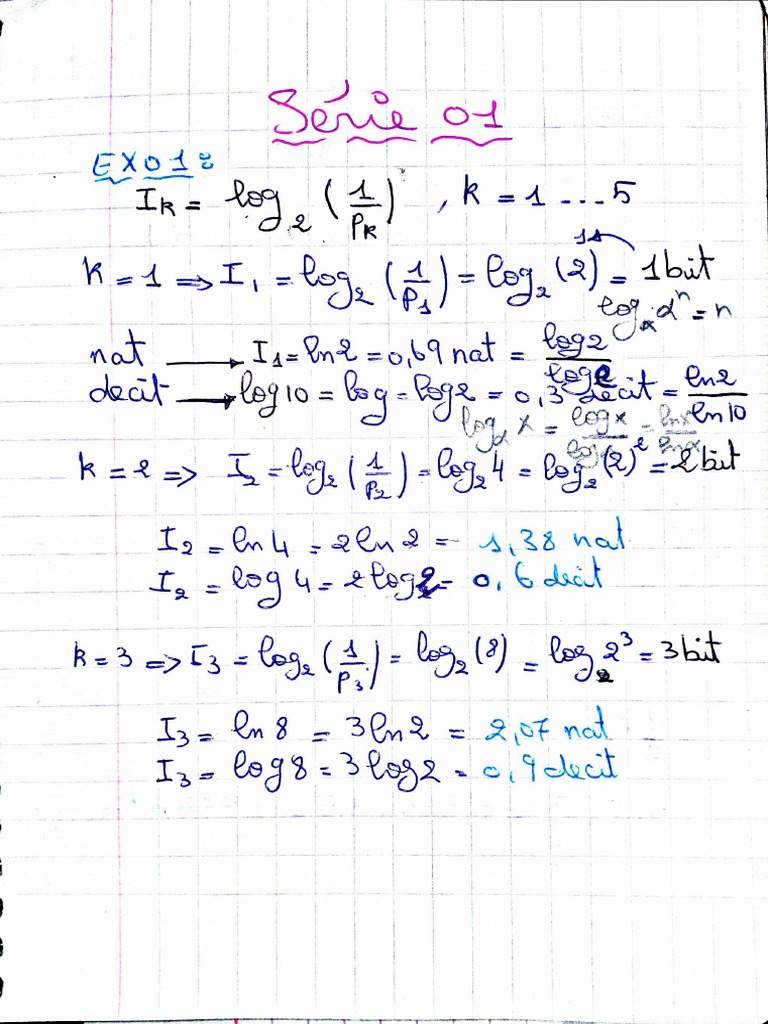 Série 01
EXO1:
I_K = log_2 (1/P_K) , K = 1 ... 5
K = 1 => I_1 = log_2 (1/P_1) = log_2 (2)^1 = 1 bit
log_α α^n = n
nat → I_1 = ln2 = 0,69 nat = log2/log e
decit → log10 = log = log2 = 0,3 decit = ln2/ln10
log_α x = log x/log α = ln x/ln α
K = 2 => I_2 = log_2 (1/P_2) = log_2 4 = log_2 (2)^2 = 2 bit
I_2 = ln 4 = 2 ln 2 = 1,38 nat
I_2 = log 4 = 2 log 2 = 0,6 decit
K = 3 => I_3 = log_2 (1/P_3) = log_2 (8) = log_2 2^3 = 3 bit
I_3 = ln 8 = 3 ln 2 = 2,07 nat
I_3 = log 8 = 3 log 2 = 0,9 decit